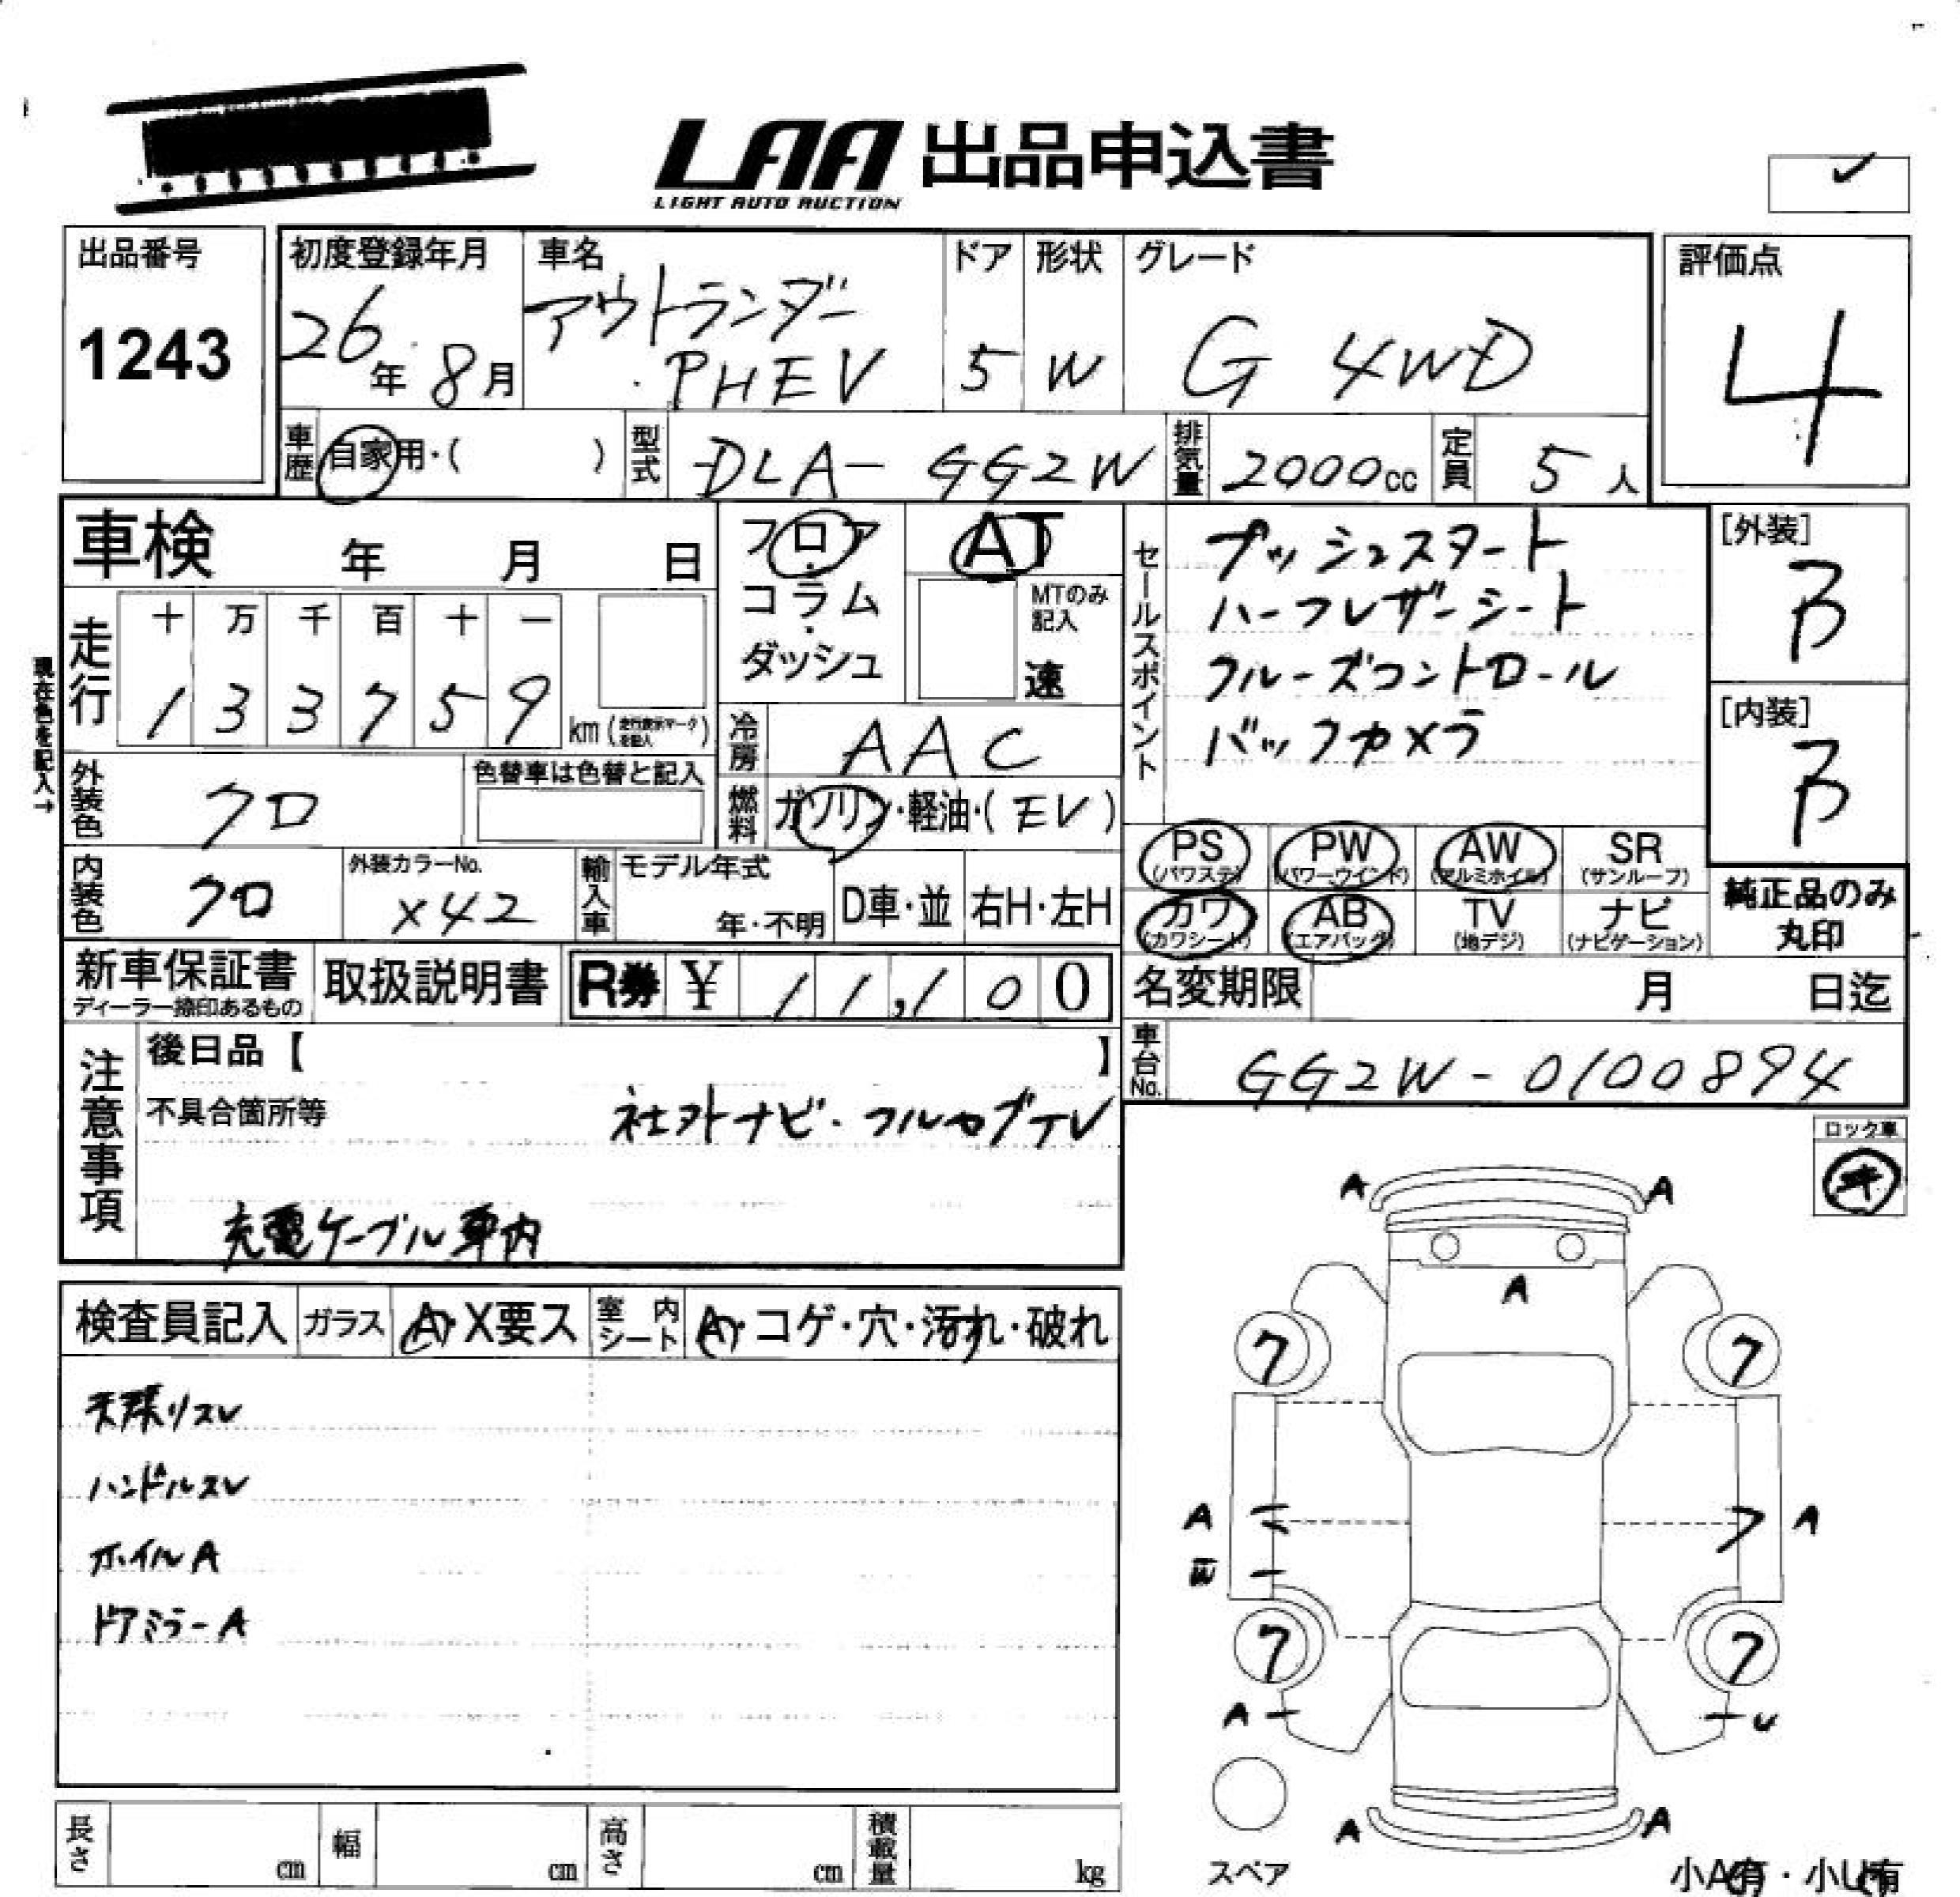 LAA 出品申込書
LIGHT AUTO AUCTION
出品番号
1243
初度登録年月
26年 8月
車名
アウトランダー
PHEV
ドア
5
形状
W
グレード
G 4WD
評価点
4
車歴
自家用・( )
型式
DLA-GG2W
排気量
2000cc
定員
5人
車検 年 月 日
フロア
コラム
・
ダッシュ
AT
MTのみ
記入
速
セールスポイント
プッシュスタート
ハーフレザーシート
クルーズコントロール
バックカメラ
[外装]
B
[内装]
B
現在色を記入→
走行
十 万 千 百 十 一
1 3 3 7 5 9
km (走行表示マークを記入)
冷房
AAC
外装色
クロ
色替車は色替と記入
燃料
ガソリン・軽油・(EV)
内装色
クロ
外装カラーNo.
X42
輸入車
モデル年式
年・不明
D車・並
右H・左H
PS
(パワステ)
PW
(パワーウインド)
AW
(アルミホイル)
SR
(サンルーフ)
カワ
(カワシート)
AB
(エアバッグ)
TV
(地デジ)
ナビ
(ナビゲーション)
純正品のみ
丸印
新車保証書
ディーラー捺印あるもの
取扱説明書
R券 ¥ 11,100
名変期限 月 日迄
車台No.
GG2W-0100894
注意事項
後日品【 】
不具合箇所等
社外ナビ・フルセグTV
充電ケーブル車内
ロック車
キ
検査員記入
ガラス
A・X要ス
室内シート
A・コゲ・穴・汚れ・破れ
天張リスレ
ハンドルスレ
ホイルA
ドアミラーA
A A
A
7 7
A A
W
7 7
A U
A A
スペア
小A有・小U有
長さ cm
幅 cm
高さ cm
積載量 kg